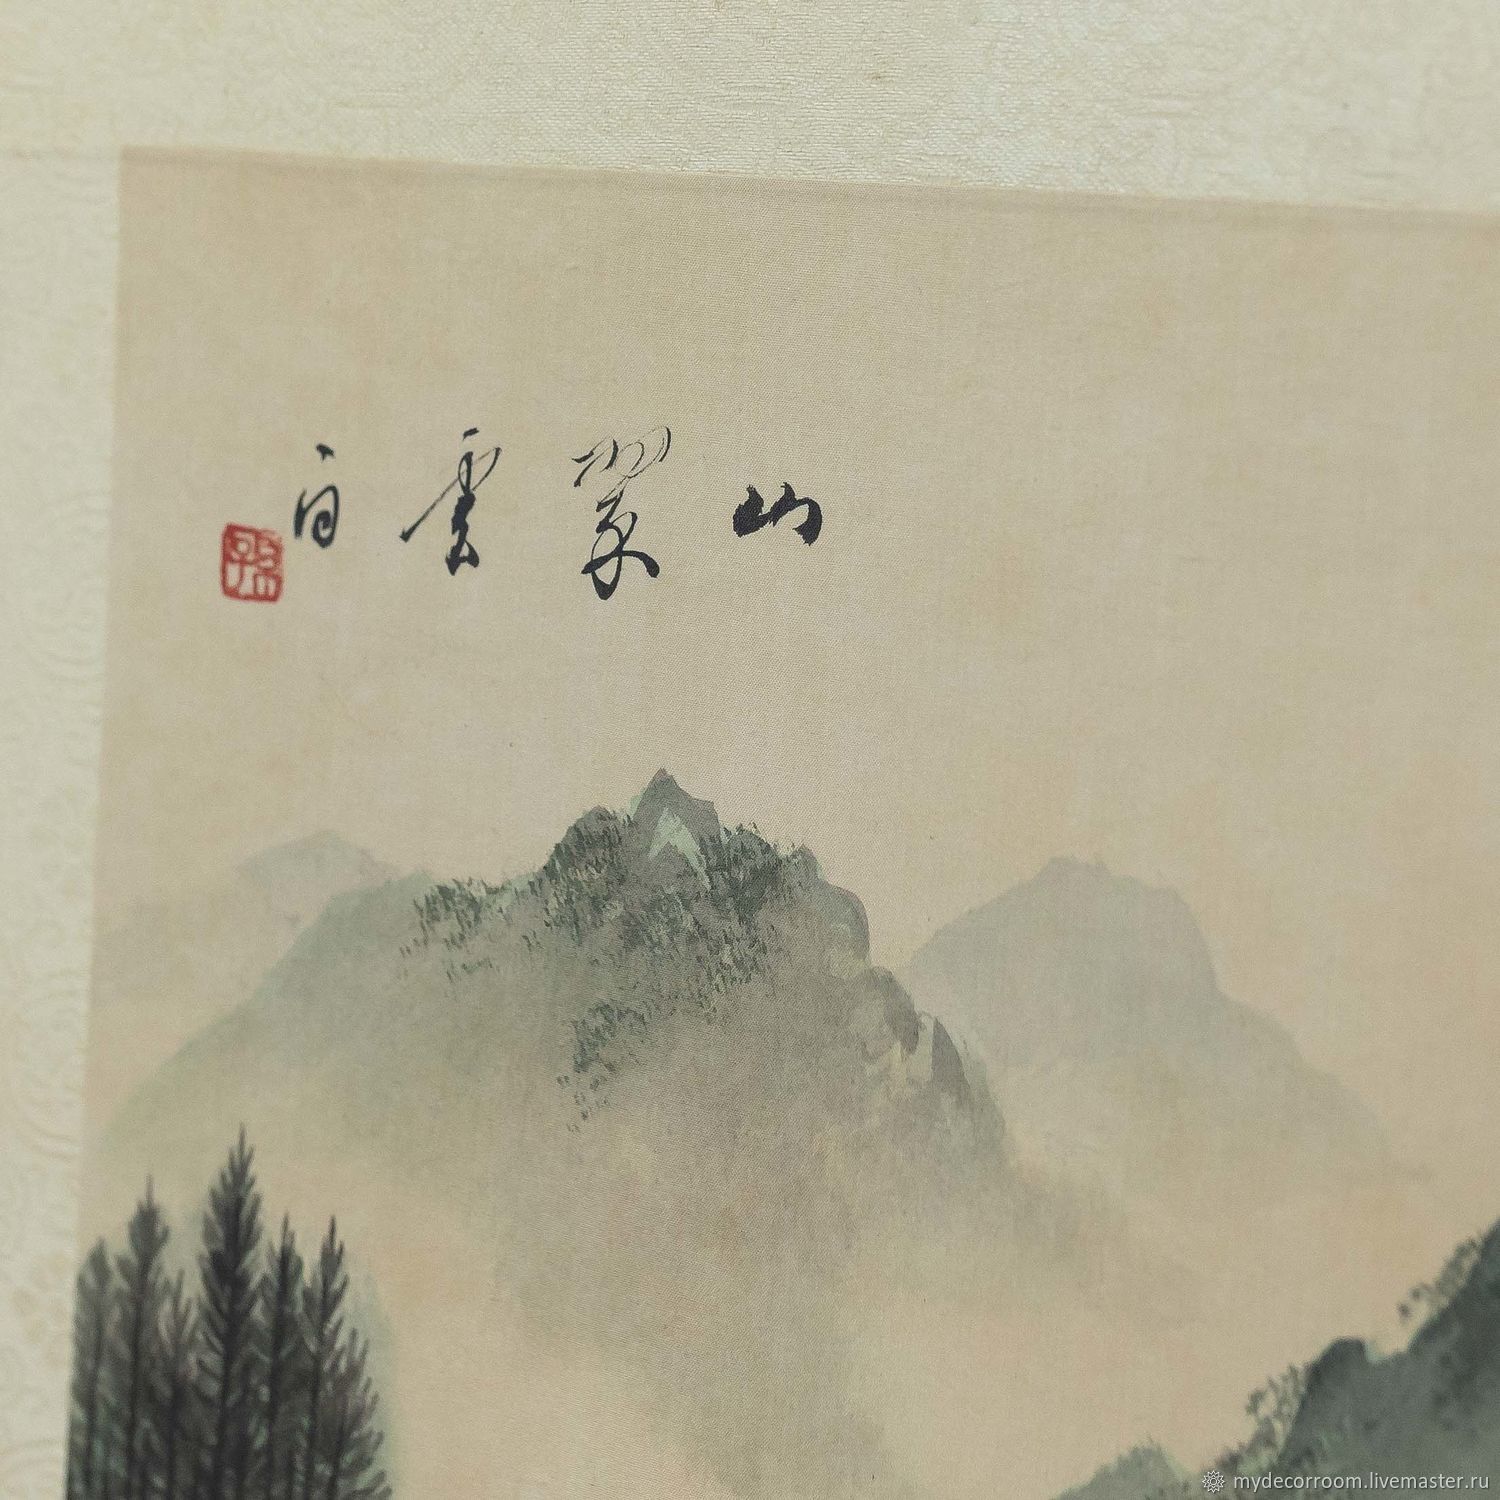 山翠雲白
mydecorroom.livemaster.ru